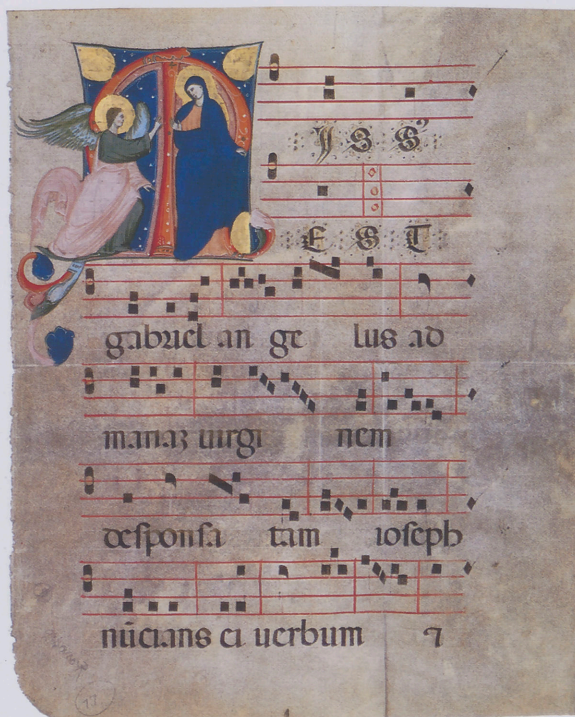 MISS'
EST
gabriel an ge lus ad
mariaʒ uirgi nem
desponsa tam ioseph
nũcians ei uerbum ⁊
17